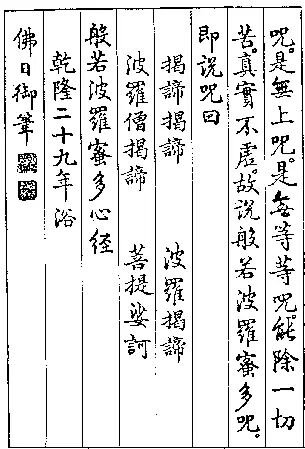 咒。是無上咒。是無等等咒。能除一切
苦。真實不虛。故說般若波羅蜜多咒。
即說咒曰
揭諦揭諦 波羅揭諦
波羅僧揭諦 菩提娑訶
般若波羅蜜多心経
乾隆二十九年浴
佛日御筆